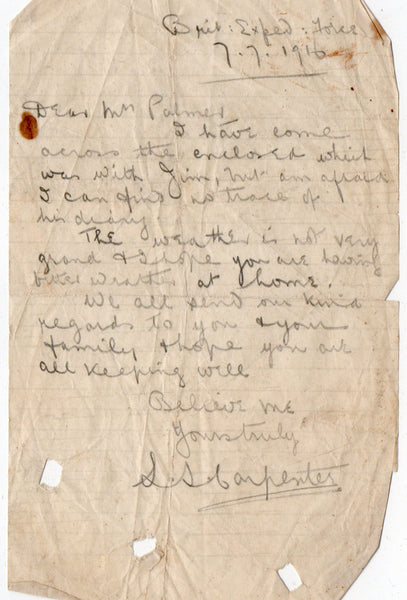 Brit: Exped: Force
7.7.1916
Dear Mrs Palmer
I have come
across the enclosed which
was with Jim, but am afraid
I can find no trace of
his diary
The weather is not very
grand & I hope you are having
better weather at home.
We all send our kind
regards to you & your
family, & hope you are
all keeping well
Believe me
Yours truly
S S Carpenter